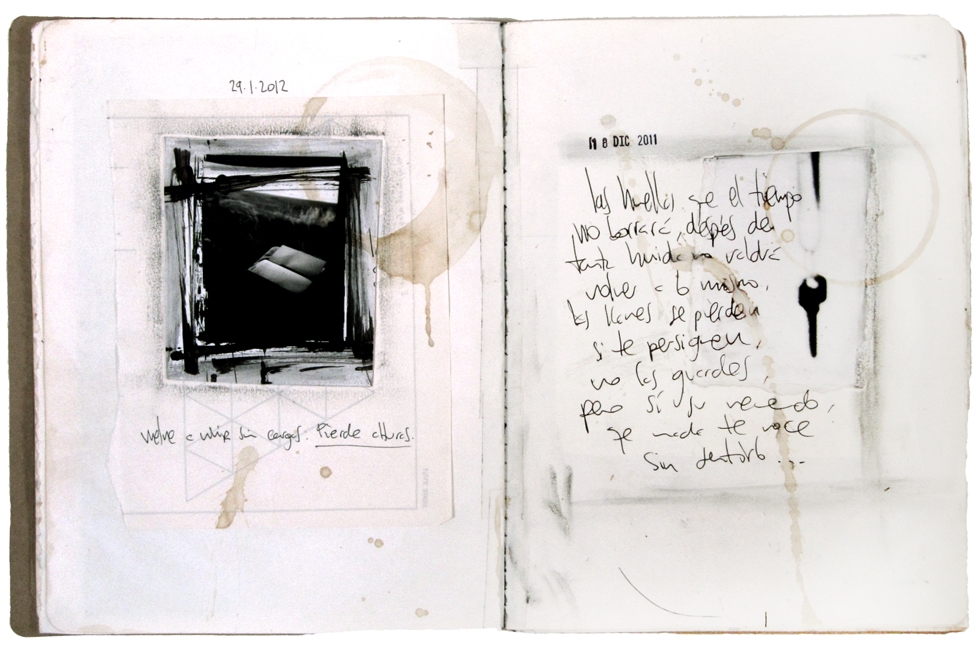 29.1.2012
vuelve a vivir sin cargas. Pierde alturas.
18 DIC 2011
las huellas que el tiempo
no borrará, después de
tanta huida no valdrá
volver a lo mismo,
las llaves se pierden
si te persiguen,
no las guardes,
pero sí su recuerdo,
que nada te roce
sin sentirlo...